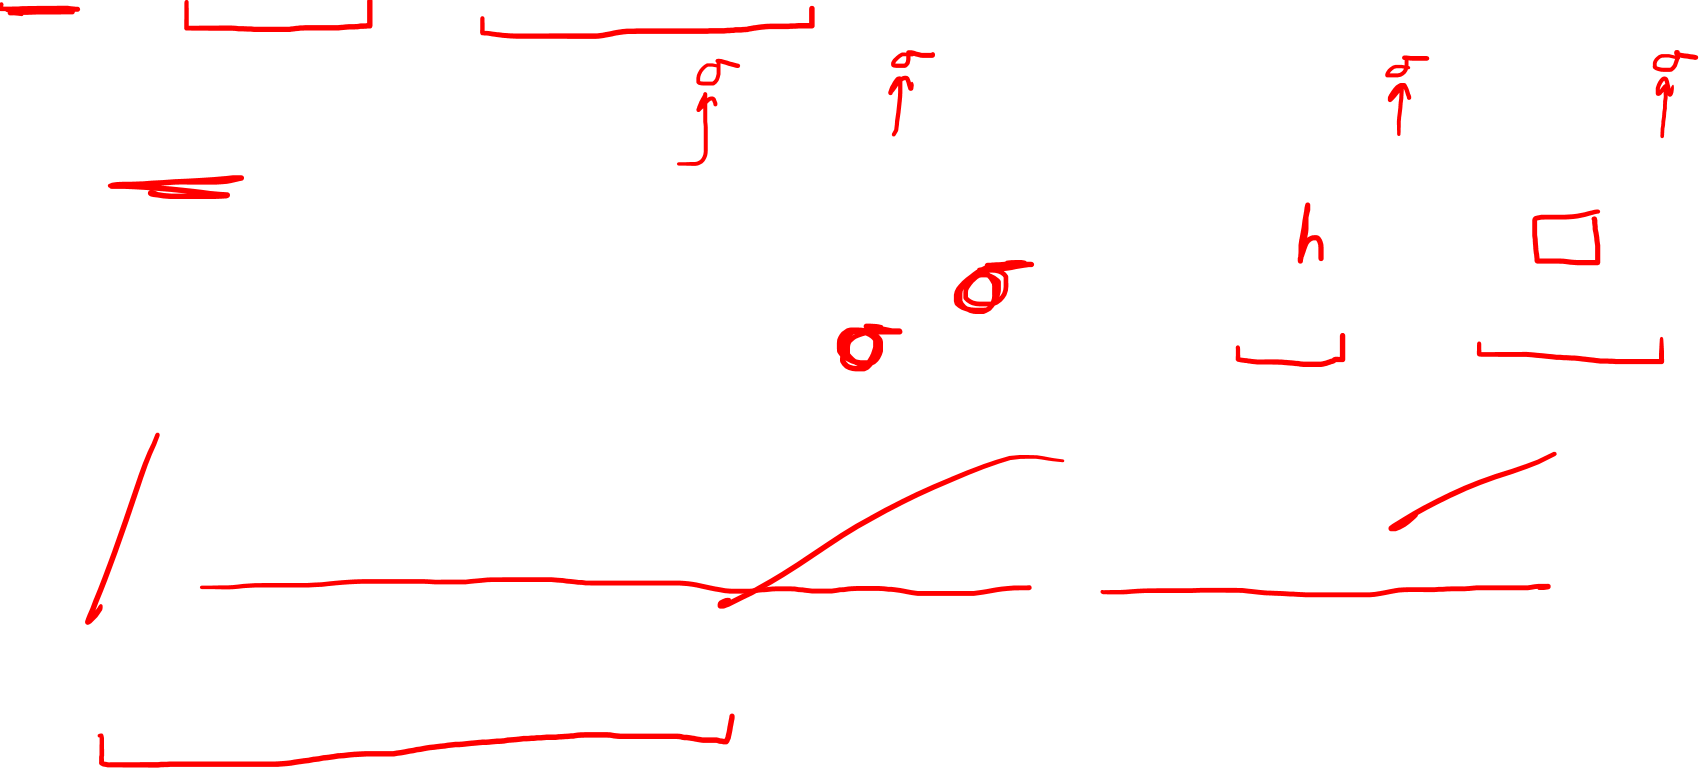 σ σ σ σ
h □
σ
σ